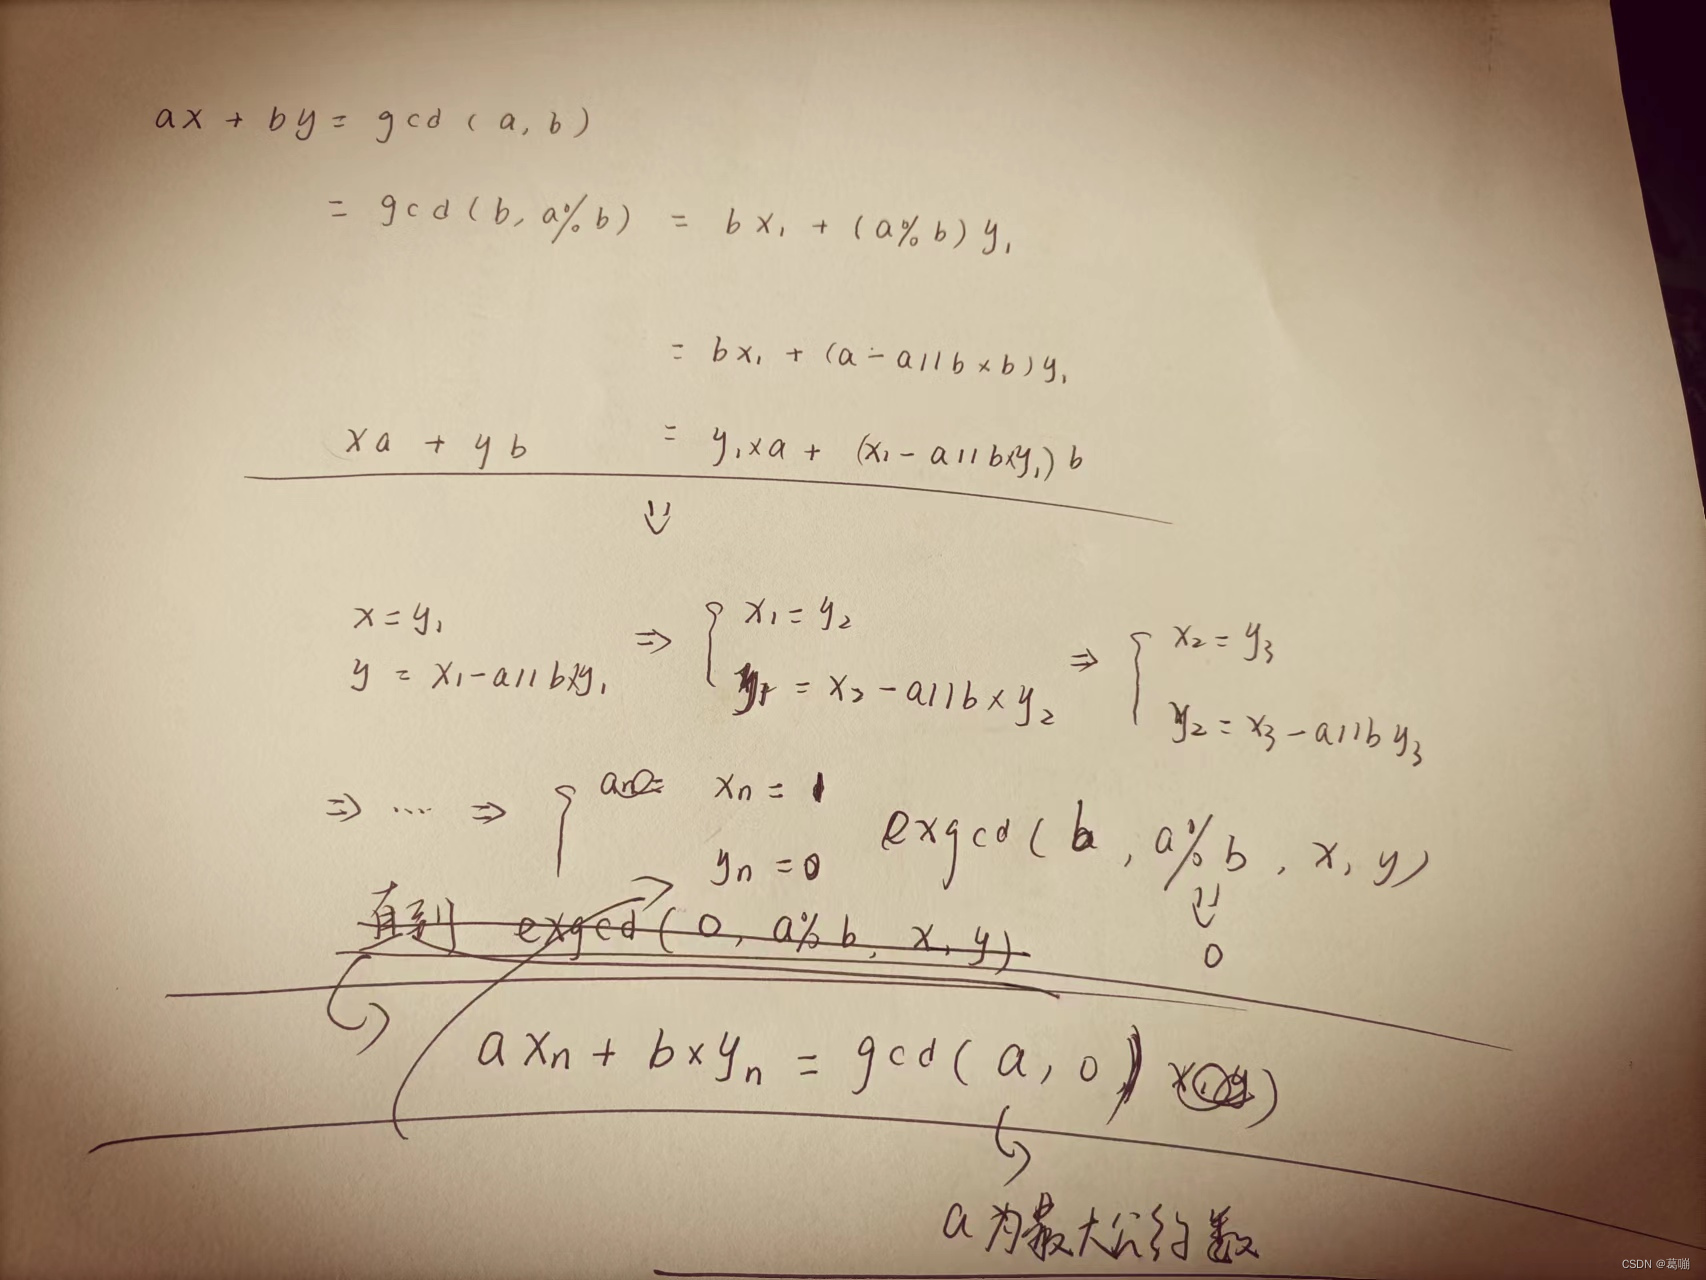 ax + by = gcd (a, b)
= gcd (b, a%b) = bx₁ + (a%b) y₁
= bx₁ + (a - a//b×b) y₁
xa + yb = y₁×a + (x₁ - a//b×y₁) b
⇓
x = y₁ ⇒ { x₁ = y₂ ⇒ { x₂ = y₃
y = x₁ - a//b×y₁ y₁ = x₂ - a//b×y₂ y₂ = x₃ - a//b y₃
⇒ ... ⇒ { xₙ = 1
yₙ = 0 exgcd (b, a%b, x, y)
⇓
直到 exgcd (0, a%b, x, y) 0
axₙ + b×yₙ = gcd (a, 0)
a为最大公约数
CSDN @葛嘣